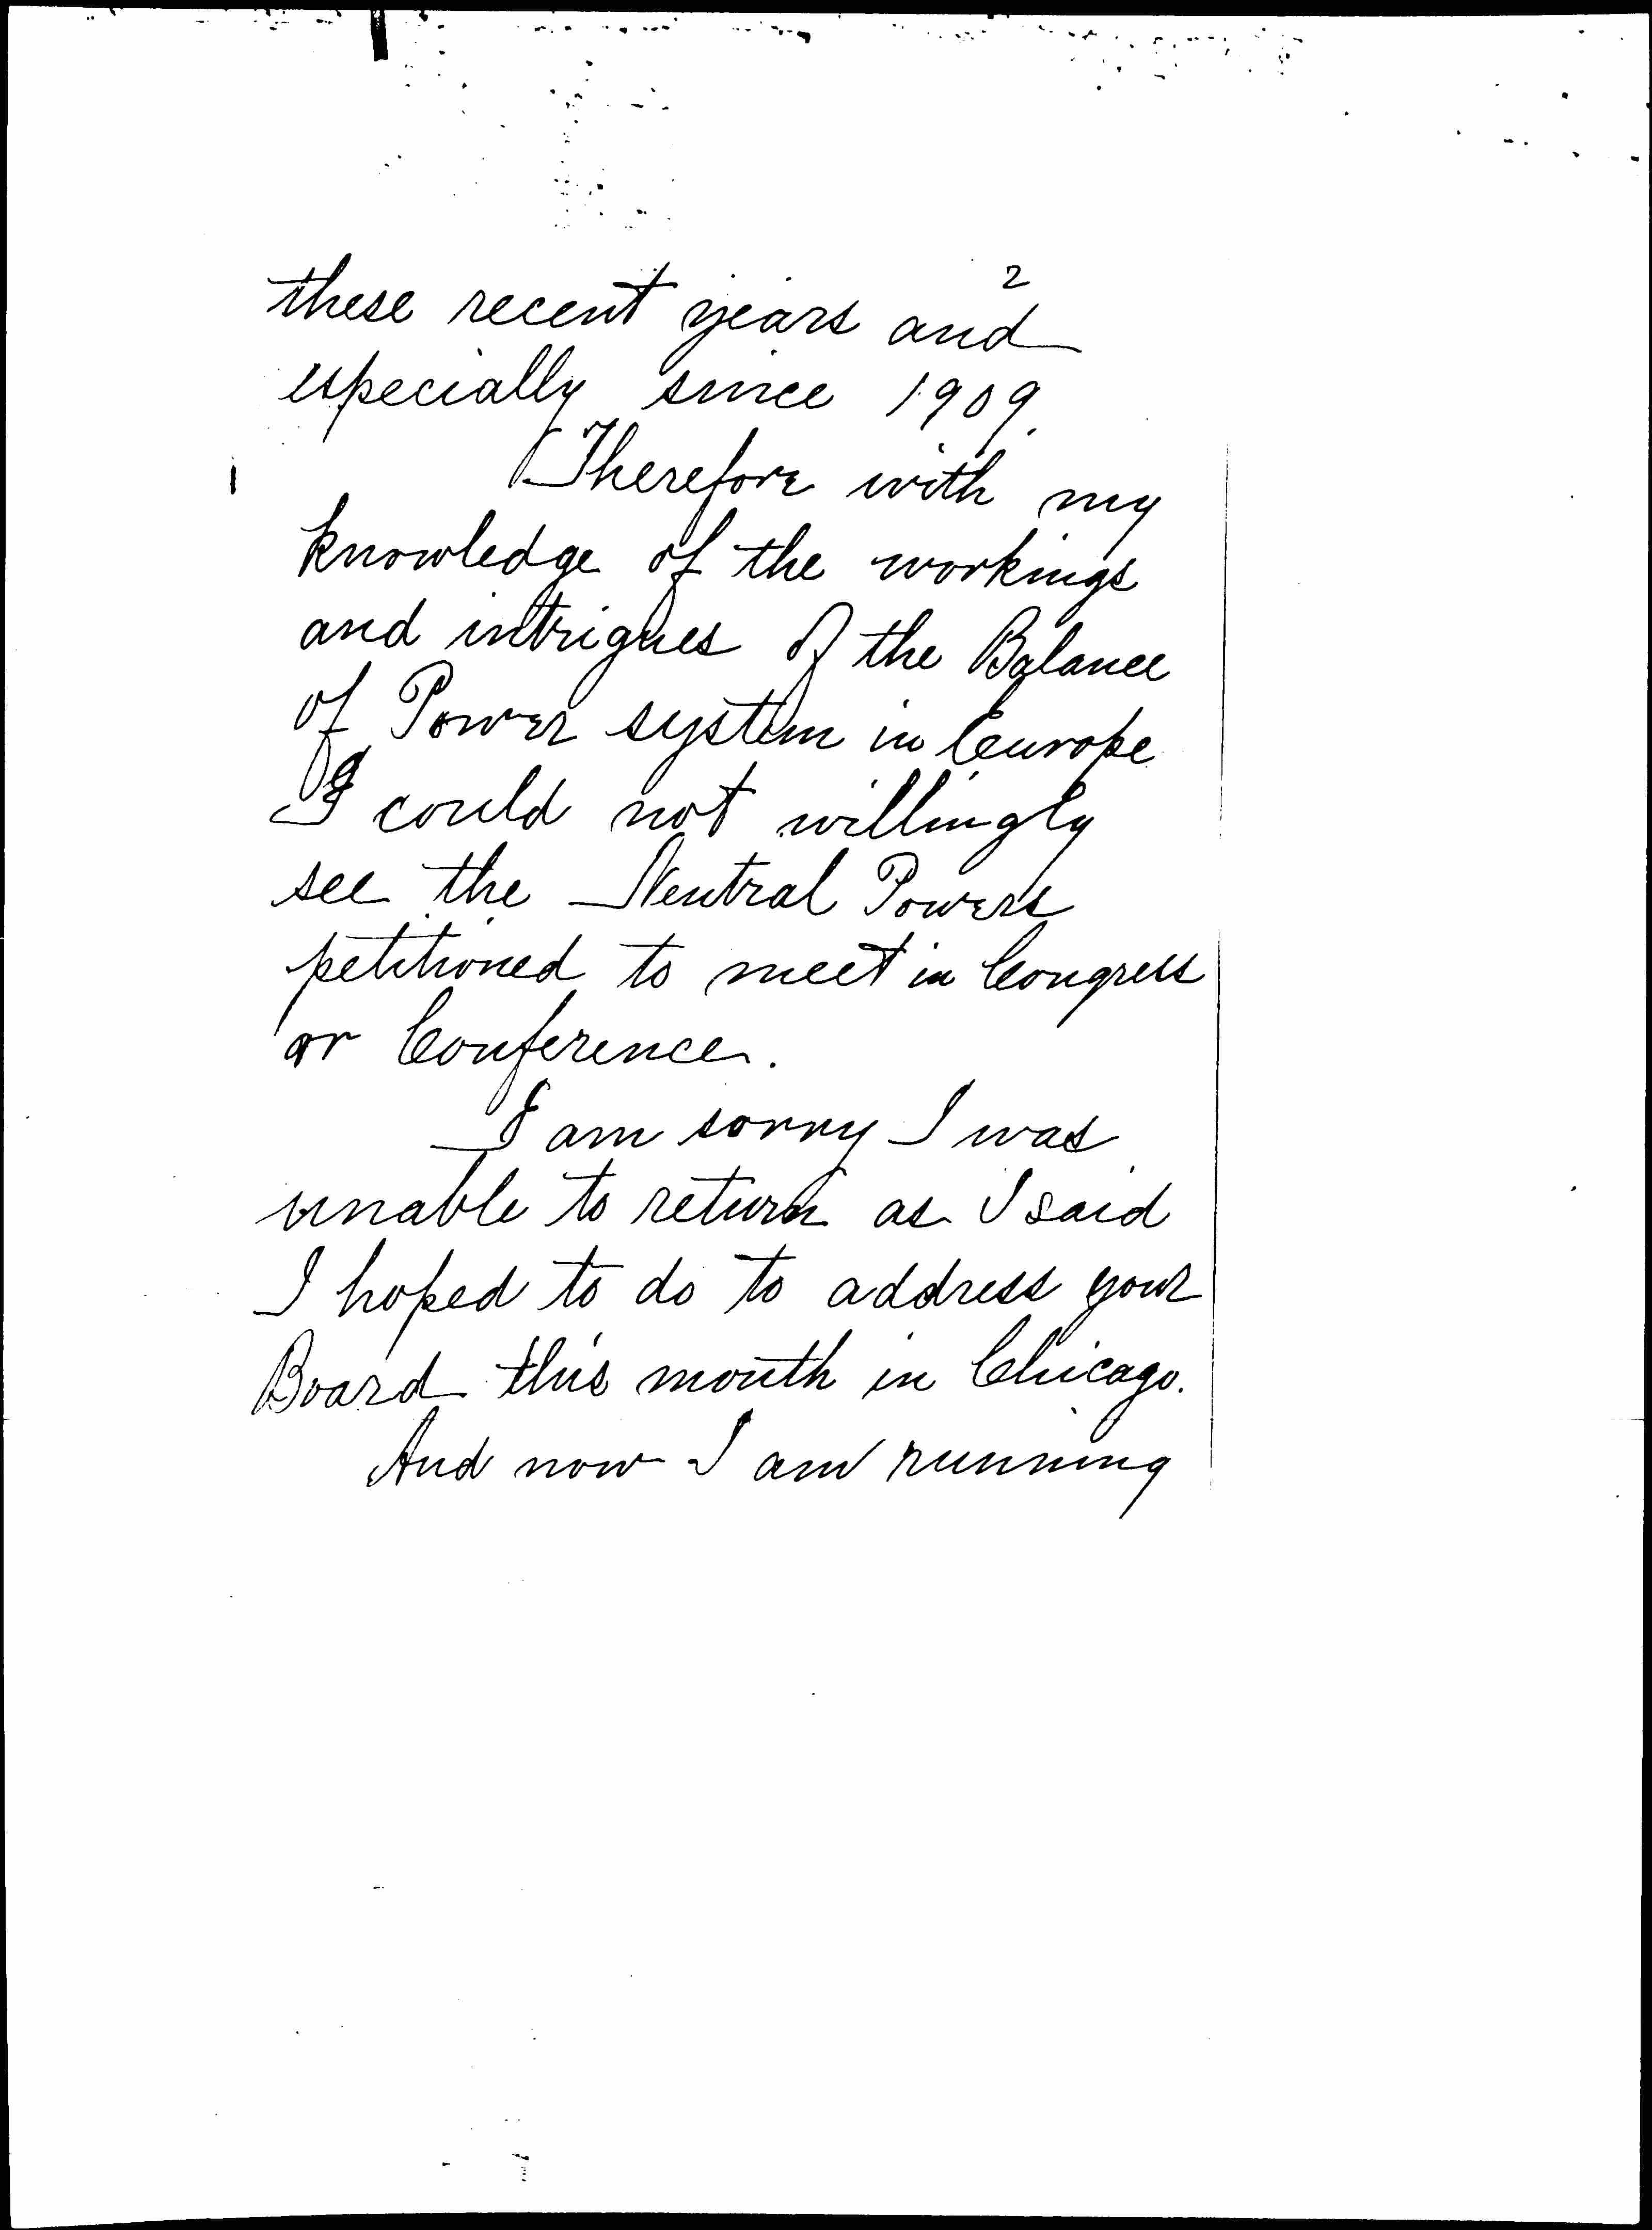 2
these recent years and
especially since 1909.
Therefore with my
knowledge of the workings
and intrigues of the Balance
of Power system in Europe
I could not willingly
see the Neutral Powers
petitioned to meet in Congress
or Conference.
I am sorry I was
unable to return as I said
I hoped to do to address your
Board this month in Chicago.
And now I am running